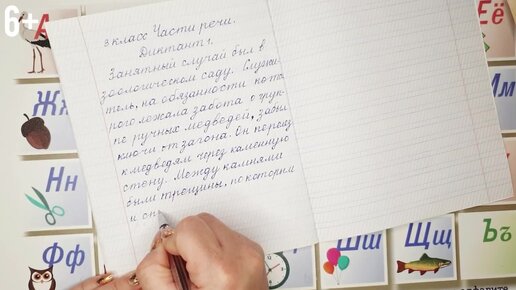 6+
А
Её
3 класс Части речи.
Диктант 1.
Занятный случай был в
зоологическом саду. Служи-
тель, на обязанности кото-
рого лежала забота о груп-
пе ручных медведей, забыл
ключи от загона. Он перелез
к медведям через каменную
стену. Между камнями
были трещины, по которым
и сп
Жж
Нн
Мм
Фф
Шш
Щщ
Ъъ